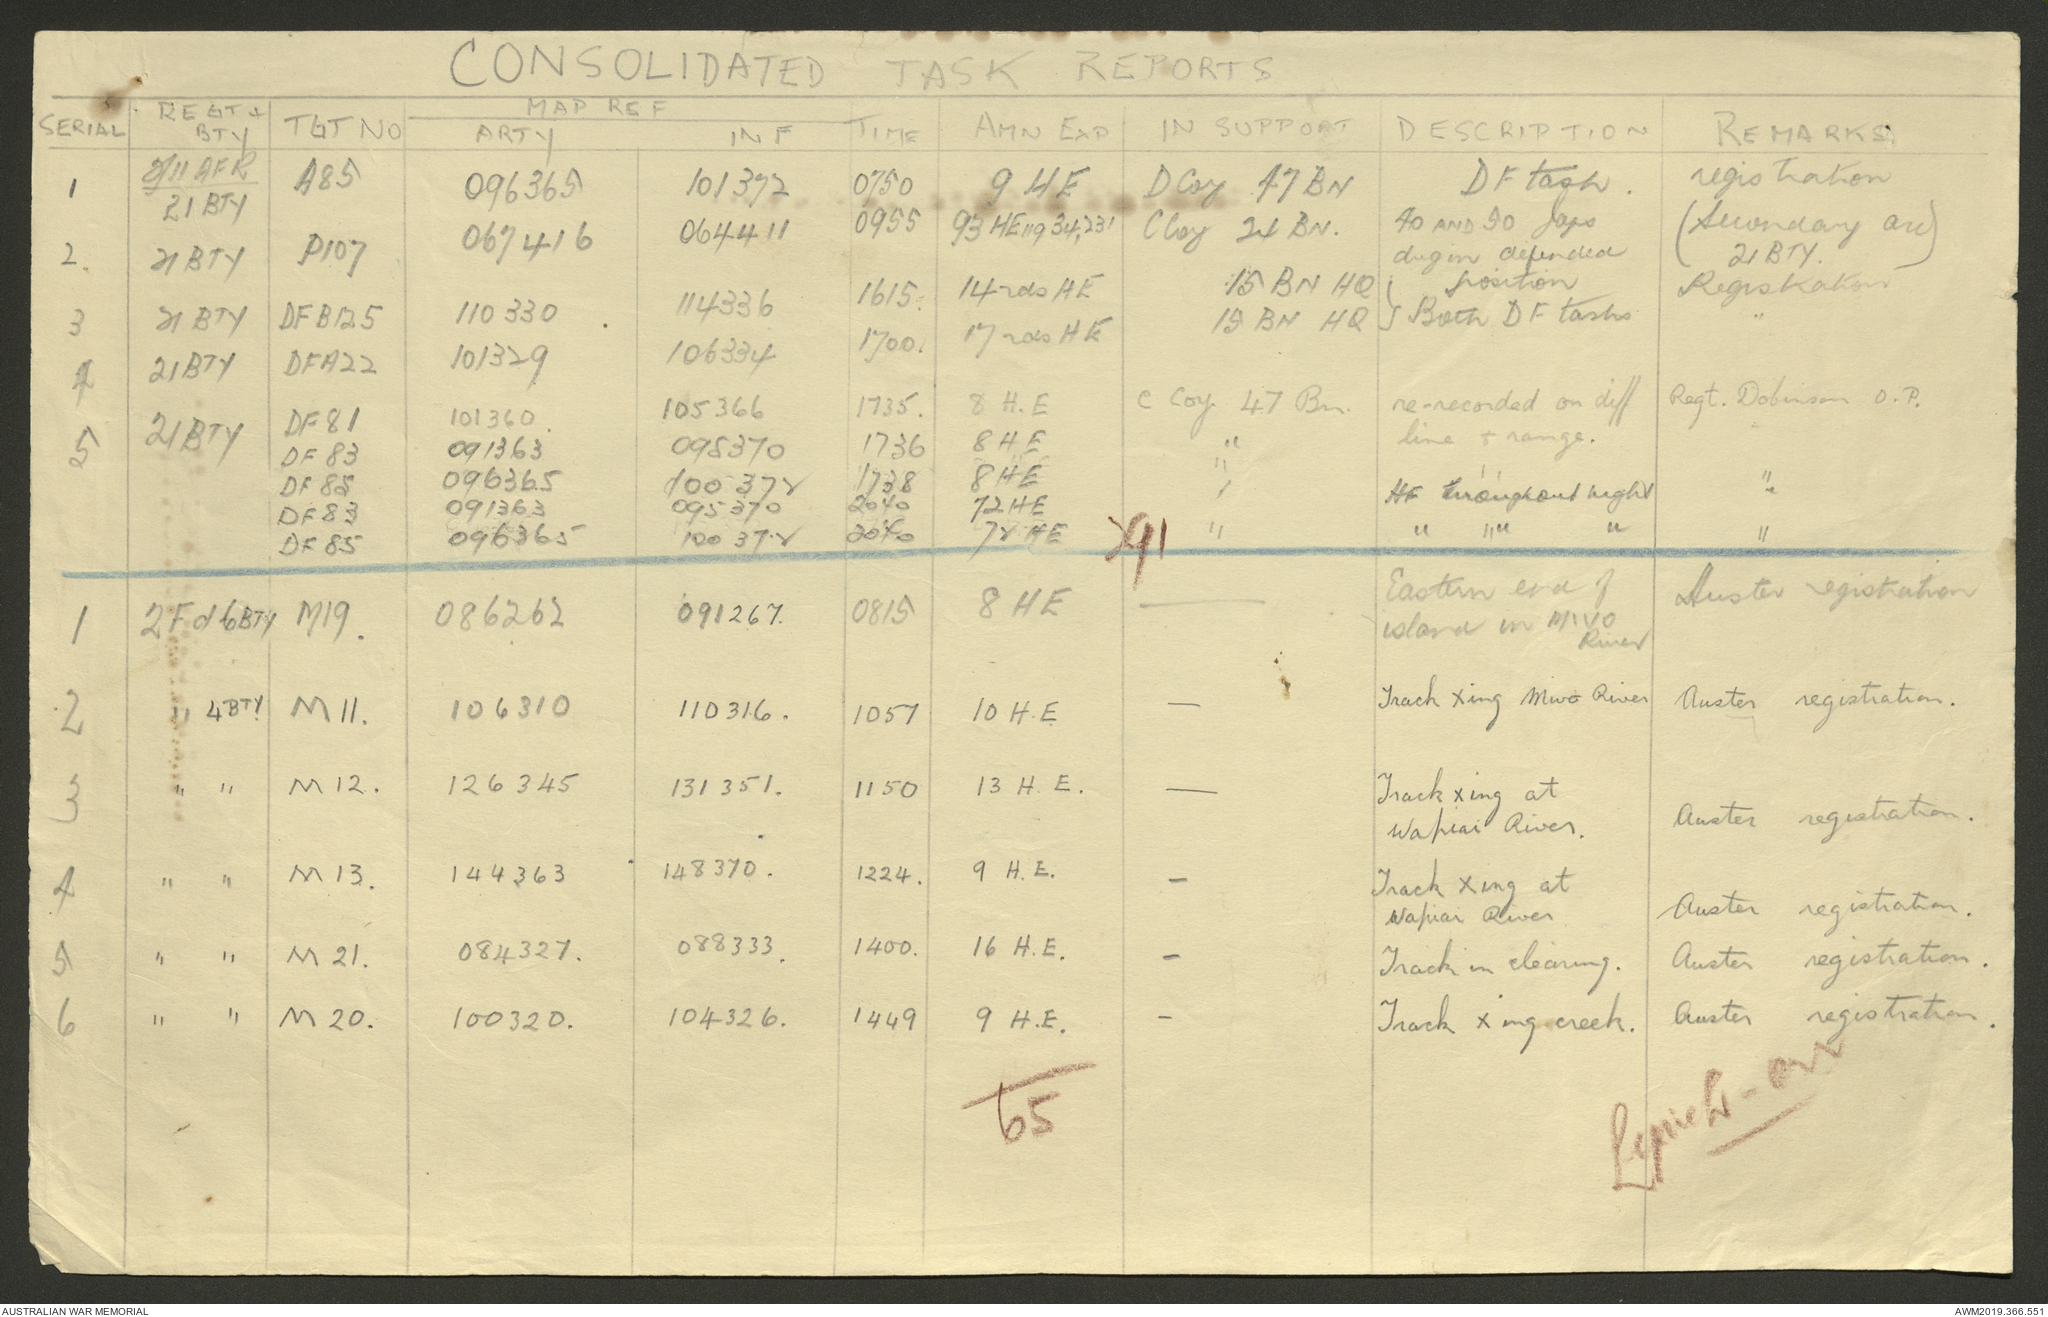 CONSOLIDATED TASK REPORTS
SERIAL REGT + BTY TGT NO MAP REF ARTY INF TIME AMN EXP IN SUPPORT DESCRIPTION REMARKS
1 2/11 AFR 21 BTY A85 096365 101372 0750 9 HE D Coy 47 BN DF task. registration
2. 21 BTY P107 067416 064411 0955 93 HE 119 34, 231 C Coy 24 BN. 40 AND 50 Japs (Secondary arc)
dug in defended 21 BTY.
position
3 21 BTY DFB125 110330 114336 1615. 14 rds HE 15 BN HQ Registration
4 21 BTY DFA22 101329 106334 1700. 17 rds HE 15 BN HQ } Both DF tasks "
5 21 BTY DF 81 101360. 105366 1735. 8 H.E C Coy. 47 Bn. re-recorded on diff Regt. Dobinson O.P.
DF 83 091363 095370 1736 8 HE " line + range. "
DF 85 096365 100372 1738 8 HE "
DF 83 091363 095370 2040 72 HE " HF throughout night "
DF 85 096365 100372 2040 72 HE 291 " " " " "
1 2 Fd 6 BTY M19. 086262 091267. 0815 8 HE — Eastern end of Auster registration
island in MIVO
River
2 " 4 BTY. M 11. 106310 110316. 1057 10 H.E — Track Xing Mivo River Auster registration.
3 " " M 12. 126345 131351. 1150 13 H.E. — Track Xing at
Wapiai River. Auster registration.
4 " " M 13. 144363 148370. 1224. 9 H.E. — Track Xing at
Wapiai River Auster registration.
5 " " M 21. 084327. 088333. 1400. 16 H.E. — Track in clearing. Auster registration.
6 " " M 20. 100320. 104326. 1449 9 H.E. — Track Xing creek. Auster registration.
65
AUSTRALIAN WAR MEMORIAL
AWM2019.366.551